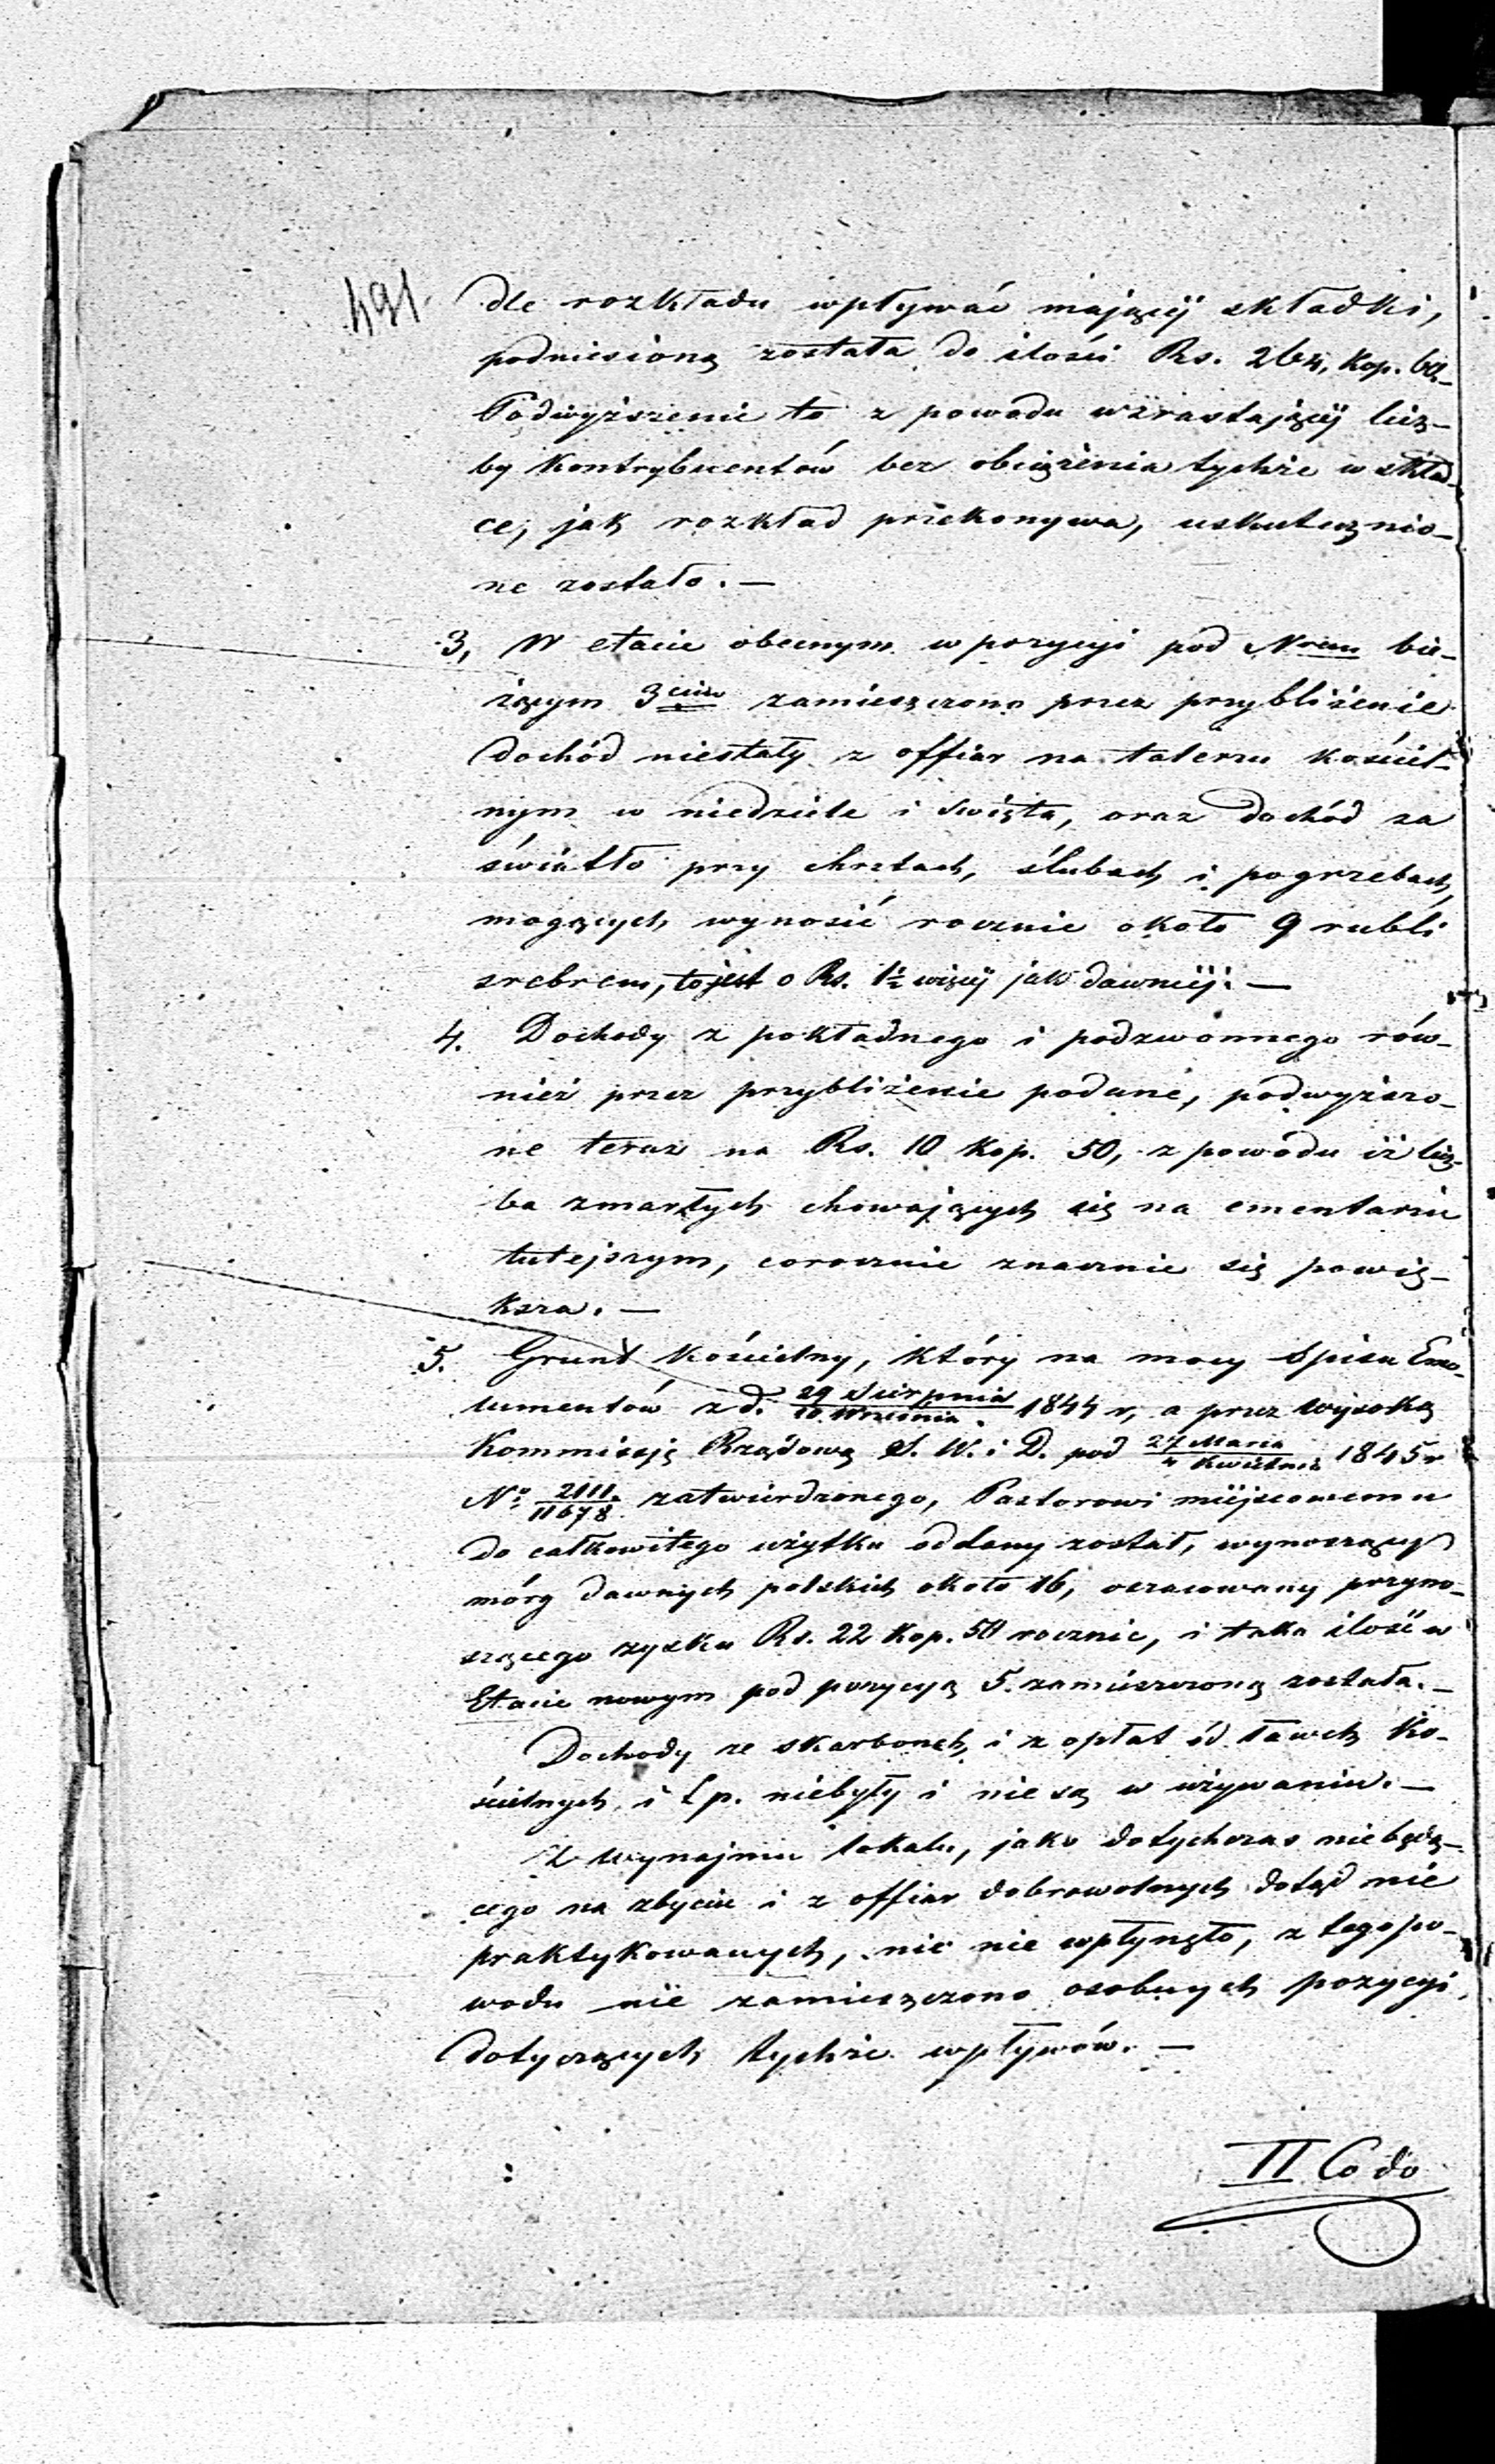 491.
dle rozkładu wpływać mającéj składki,
podniesioną została do ilości Rs. 264, kop. 60.–
Podwyższenie to z powodu wzrastającéj licz–
by Kontrybuentów bez obciążenia tychże w skład–
ce, jak rozkład przekonywa, uskutecznio–
ne zostało. —
3, W etacie obecnym w pozycyi pod Nrem bie–
żącym 3cim zamieszczono przez przybliżenie
dochód niestały z offiar na talerzu kościel–
nym w niedziele i święta, oraz dochód za
światło przy chrztach, ślubach i pogrzebach,
mogących wynosić rocznie około 9 rubli
srebrem, to jest o Rs. 1½ więcéj jak dawniéj. —
4. Dochody z pokładnego i podzwonnego rów–
nież przez przybliżenie podane, podwyższo–
ne teraz na Rs. 10 kop. 50, z powodu iż licz–
ba zmarłych chowających się na cmentarzu
tutejszym, corocznie znacznie się powię–
ksza. —
5. Grunt kościelny, który na mocy Spisu Emo–
lumentów z d. 29 Sierpnia/10 Września 1844 r, a przez wysoką
Kommissję Rządową S. W. i D. pod Marca/Kwietnia 1845 r
No 2111/11678 zatwierdzonego, Pastorowi miéjscowemu
do całkowitego użytku oddany został, wynoszący
mórg dawnych polskich około 16, oszacowany przyno–
szącego zysku Rs. 22 kop. 50 rocznie, i taka ilość w
Etacie nowym pod pozycyą 5. zamieszczoną została. –
Dochody ze skarbonek i z opłat od ławek Ko–
ścielnych i t p. niebyły i nie są w używaniu. —
Z wynajmu lokalu, jako dotychczas niebędą–
cego na zbyciu i z offiar dobrowolnych dotąd nie
praktykowanych, nic nie wpłynęło, z tego po–
wodu nie zamieszczono osobnych pozycyi,
dotyczących tychże wpływów. —
II Co do